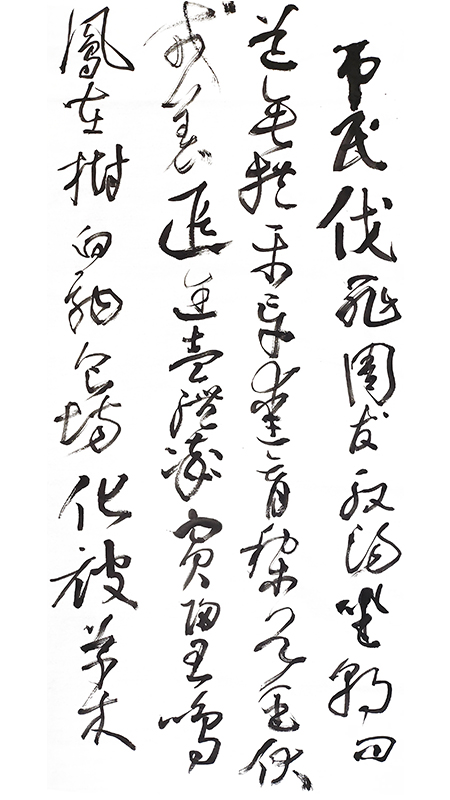 吊民伐罪周发殷湯坐朝问
道垂拱平章愛育黎首臣伏
戎羌遐迩壹體率賓歸王鳴
鳳在樹白駒食場化被草木